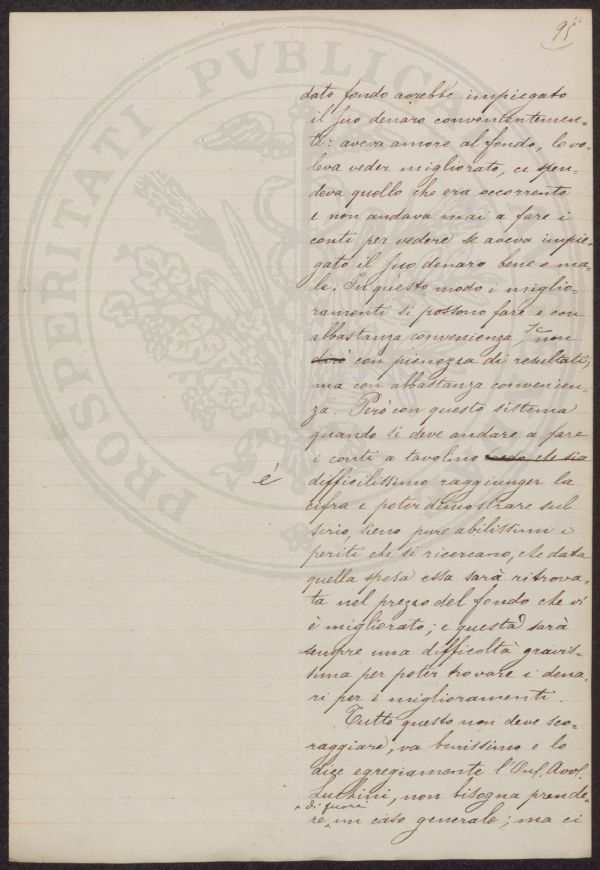 95
dato fondo avrebbe impiegato
il suo denaro convenientemen=
te: aveva amore al fondo, lo vo=
leva veder migliorato, ci spen=
deva quello che era occorrente
e non andava mai a fare i
conti per vedere se aveva impie=
gato il suo denaro bene o ma=
le. In questo modo i miglio=
ramenti si possono fare e con
abbastanza convenienza, se non
dirò con pienezza di resultati,
ma con abbastanza convenien=
za. Però con questo sistema
quando si deve andare a fare
i conti a tavolino credo che sia
è difficilissimo raggiunger la
cifra e poter dimostrare sul
serio, sieno pure abilissimi i
periti che si ricercano, che data
quella spesa essa sarà ritrova=
ta nel prezzo del fondo che vi
è migliorato; e questa sarà
sempre una difficoltà gravis=
sima per poter trovare i dena=
ri per i miglioramenti.
Tutto questo non deve sco=
raggiare, va benissimo e lo
dice egregiamente l'On. Avv.
Luchini, non bisogna prende=
re di fuori un caso generale; ma ci
PROSPERITATI PVBLICAE